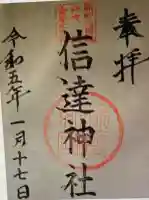 奉拝
信達神社
令和五年一月十七日